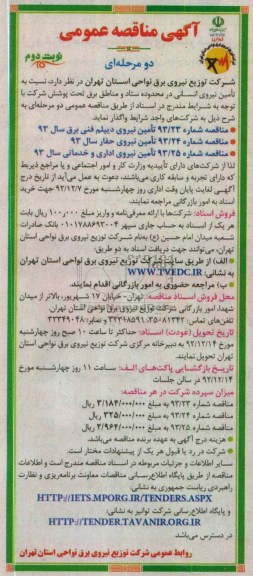 آگهی مناقصه عمومی
نوبت دوم
دو مرحله‌ای
شرکت توزیع نیروی برق نواحی استان تهران در نظر دارد، نسبت به
تأمین نیروی انسانی در محدوده ستاد و مناطق برق تحت پوشش شرکت با
توجه به شرایط مندرج در اسناد از طریق مناقصه عمومی دو مرحله‌ای به
شرح ذیل به شرکت‌های واجد شرایط واگذار نماید.
مناقصه شماره ۹۳/۲۳ تأمین نیروی دیپلم فنی برق سال ۹۳
مناقصه شماره ۹۳/۲۴ تأمین نیروی حفار سال ۹۳
مناقصه شماره ۹۳/۲۵ تأمین نیروی اداری و خدماتی سال ۹۳
لذا از شرکت‌های دارای تأییدیه وزارت کار و امور اجتماعی و یا مراجع ذیربط
که دارای تجربه و سابقه کاری می‌باشند، دعوت به عمل می‌آید از تاریخ درج
آگهی لغایت پایان وقت اداری روز چهارشنبه مورخ ۹۲/۱۲/۷ جهت خرید
اسناد به امور بازرگانی مراجعه نمایند.
فروش اسناد: شرکت‌ها با ارائه معرفی‌نامه و واریز مبلغ ۱۰۰٫۰۰۰ ریال بابت
هر یک از اسناد به حساب جاری سپهر ۰۱۰۱۷۸۸۶۹۳۰۰۴ بانک صادرات
شعبه میدان امام حسین (ع) به‌نام شرکت توزیع نیروی برق نواحی استان
تهران، می‌توانند جهت دریافت اسناد به دو طریق.
الف) از طریق سایت شرکت توزیع نیروی برق نواحی استان تهران
به نشانی: WWW.TVEDC.IR
ب) مراجعه حضوری به امور بازرگانی اقدام نمایند.
محل فروش اسناد مناقصه: تهران- خیابان ۱۷ شهریور، بالاتر از میدان
شهدا، امور بازرگانی شرکت توزیع نیروی برق نواحی استان تهران.
تاریخ تحویل (عودت) اسناد: حداکثر تا ساعت ۱۰ صبح روز چهارشنبه
مورخ ۹۲/۱۲/۱۴ به دبیرخانه مرکزی شرکت توزیع نیروی برق نواحی استان
تهران تحویل نمایند.
تاریخ بازگشایی پاکت‌های الف: ساعت ۱۱ روز چهارشنبه مورخ
۹۲/۱۲/۱۴ در سالن جلسات
میزان سپرده شرکت در هر مناقصه:
مناقصه شماره ۹۳/۲۳ به مبلغ ۳/۱۸۴/۰۰۰/۰۰۰ ریال
مناقصه شماره ۹۳/۲۴ به مبلغ ۳۲۵/۰۰۰/۰۰۰ ریال
مناقصه شماره ۹۳/۲۵ به مبلغ ۳/۹۶۴/۰۰۰/۰۰۰ ریال
هزینه درج آگهی به عهده برنده مناقصه می‌باشد.
شرکت در رد یا قبول هر یک از پیشنهادات مختار است.
سایر اطلاعات و جزئیات مربوطه در اسناد مناقصه مندرج است و اطلاعات
مناقصه از طریق پایگاه اطلاع‌رسانی مناقصات معاونت برنامه‌ریزی و نظارت
راهبردی ریاست جمهوری به نشانی:
HTTP://IETS.MPORG.IR/TENDERS.ASPX
و پایگاه اطلاع‌رسانی شرکت توانیر به نشانی:
HTTP://TENDER.TAVANIR.ORG.IR
در دسترس می‌باشد
روابط عمومی شرکت توزیع نیروی برق نواحی استان تهران